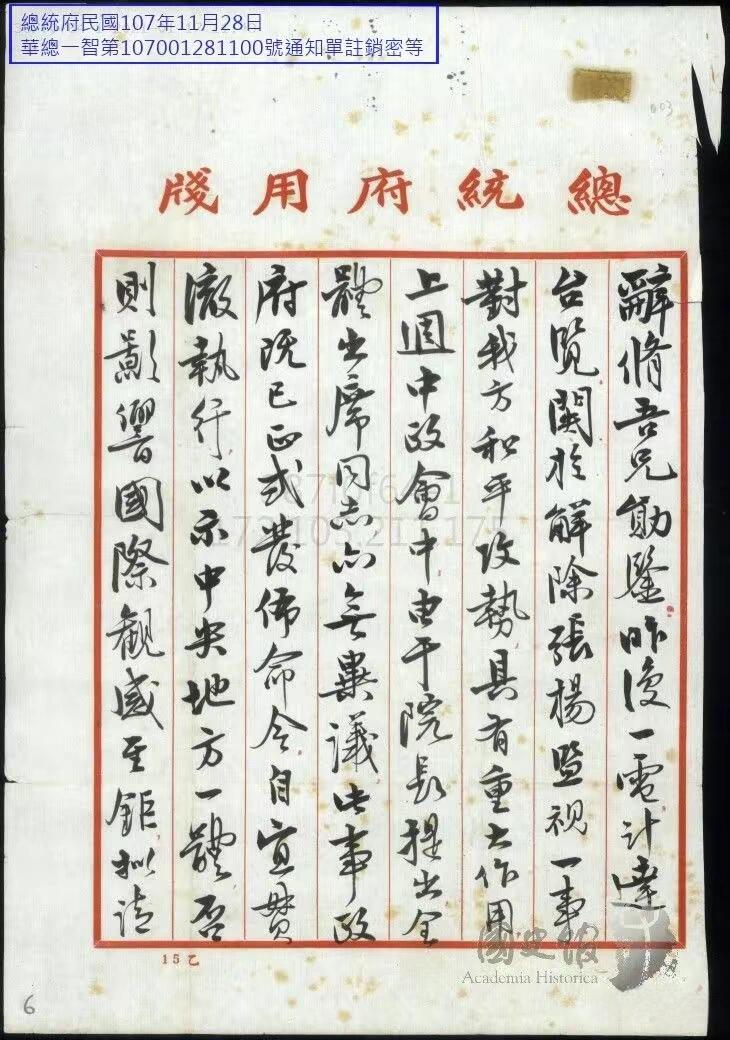 總統府民國107年11月28日
華總一智第107001281100號通知單註銷密等
003
總統府用牋
辭脩吾兄勛鑒昨復一電計達
台覽關於解除張楊監視一事
對我方和平攻勢具有重大作用
上週中政會中由于院長提出全
體出席同志亦無異議此事政
府既已正式發佈命令自宜貫
澈執行以示中央地方一體否
則影響國際觀感至鉅擬請
15乙
國史館
Academia Historica
6